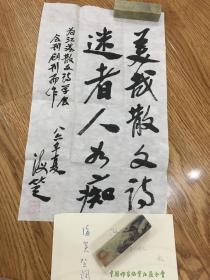 美哉散文诗
迷者人如痴
为江苏散文诗学会
会刊创刊而作
八六年夏
海笑
海笑同
中国作家协会江苏分会